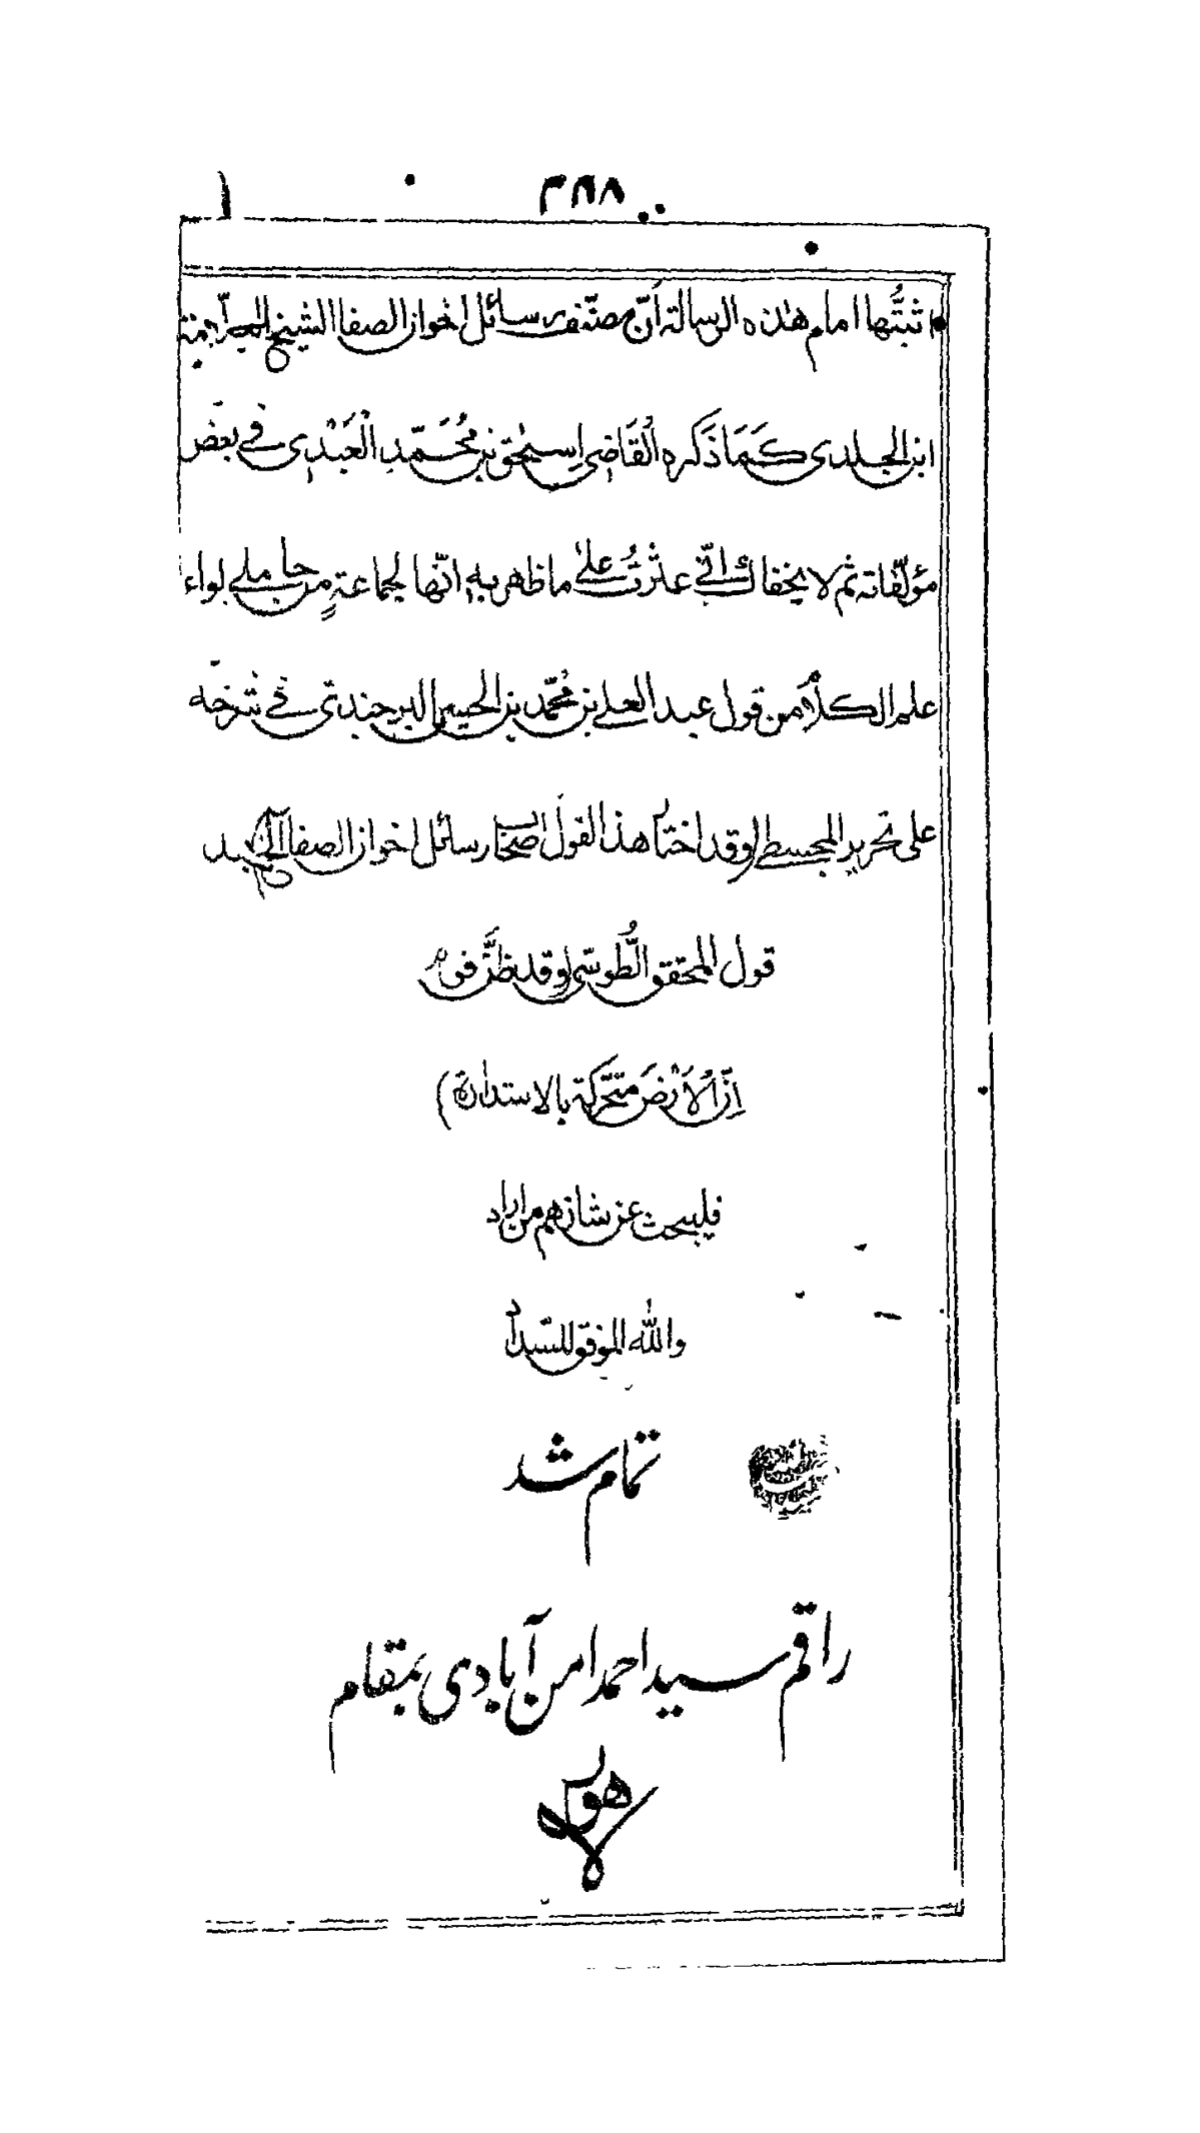 اثبتُّها امام هٰذه الرسالة اَنّ مصنّف رسائل اخوان الصفا الشيخ
ابن الجلدى كَمَا ذَكره القَاضِى اِسحٰق بن مُحَمّدِ الْعَبْدِى فى بعض
مؤلّفاته ثم لا يخفاك انّى عثرتُ علىٰ ما ظهر بهٖ انّها لجماعةٍ من حاملى لواء
علم الكلام من قول عبد العلى بن محمّد بن الحسين البرجندى فى شرحه
على تحرير المجسطى (وقد اختار هذا القول اصحاب رسائل اخوان الصفا
قول المحقق الطُّوسّى (وقد ظَنَّ قوم
اِنَّ الْاَرْضَ متحّركة بالاستدارة)
فليبحث عن شانهم من اراد
والله الموفق للسّداد
تمام شد
راقم سيد احمد امن آبادى بمقام
لاهور